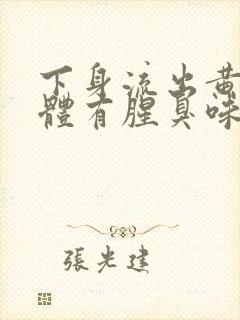 下身流出黄
體有腥臭味
張光建